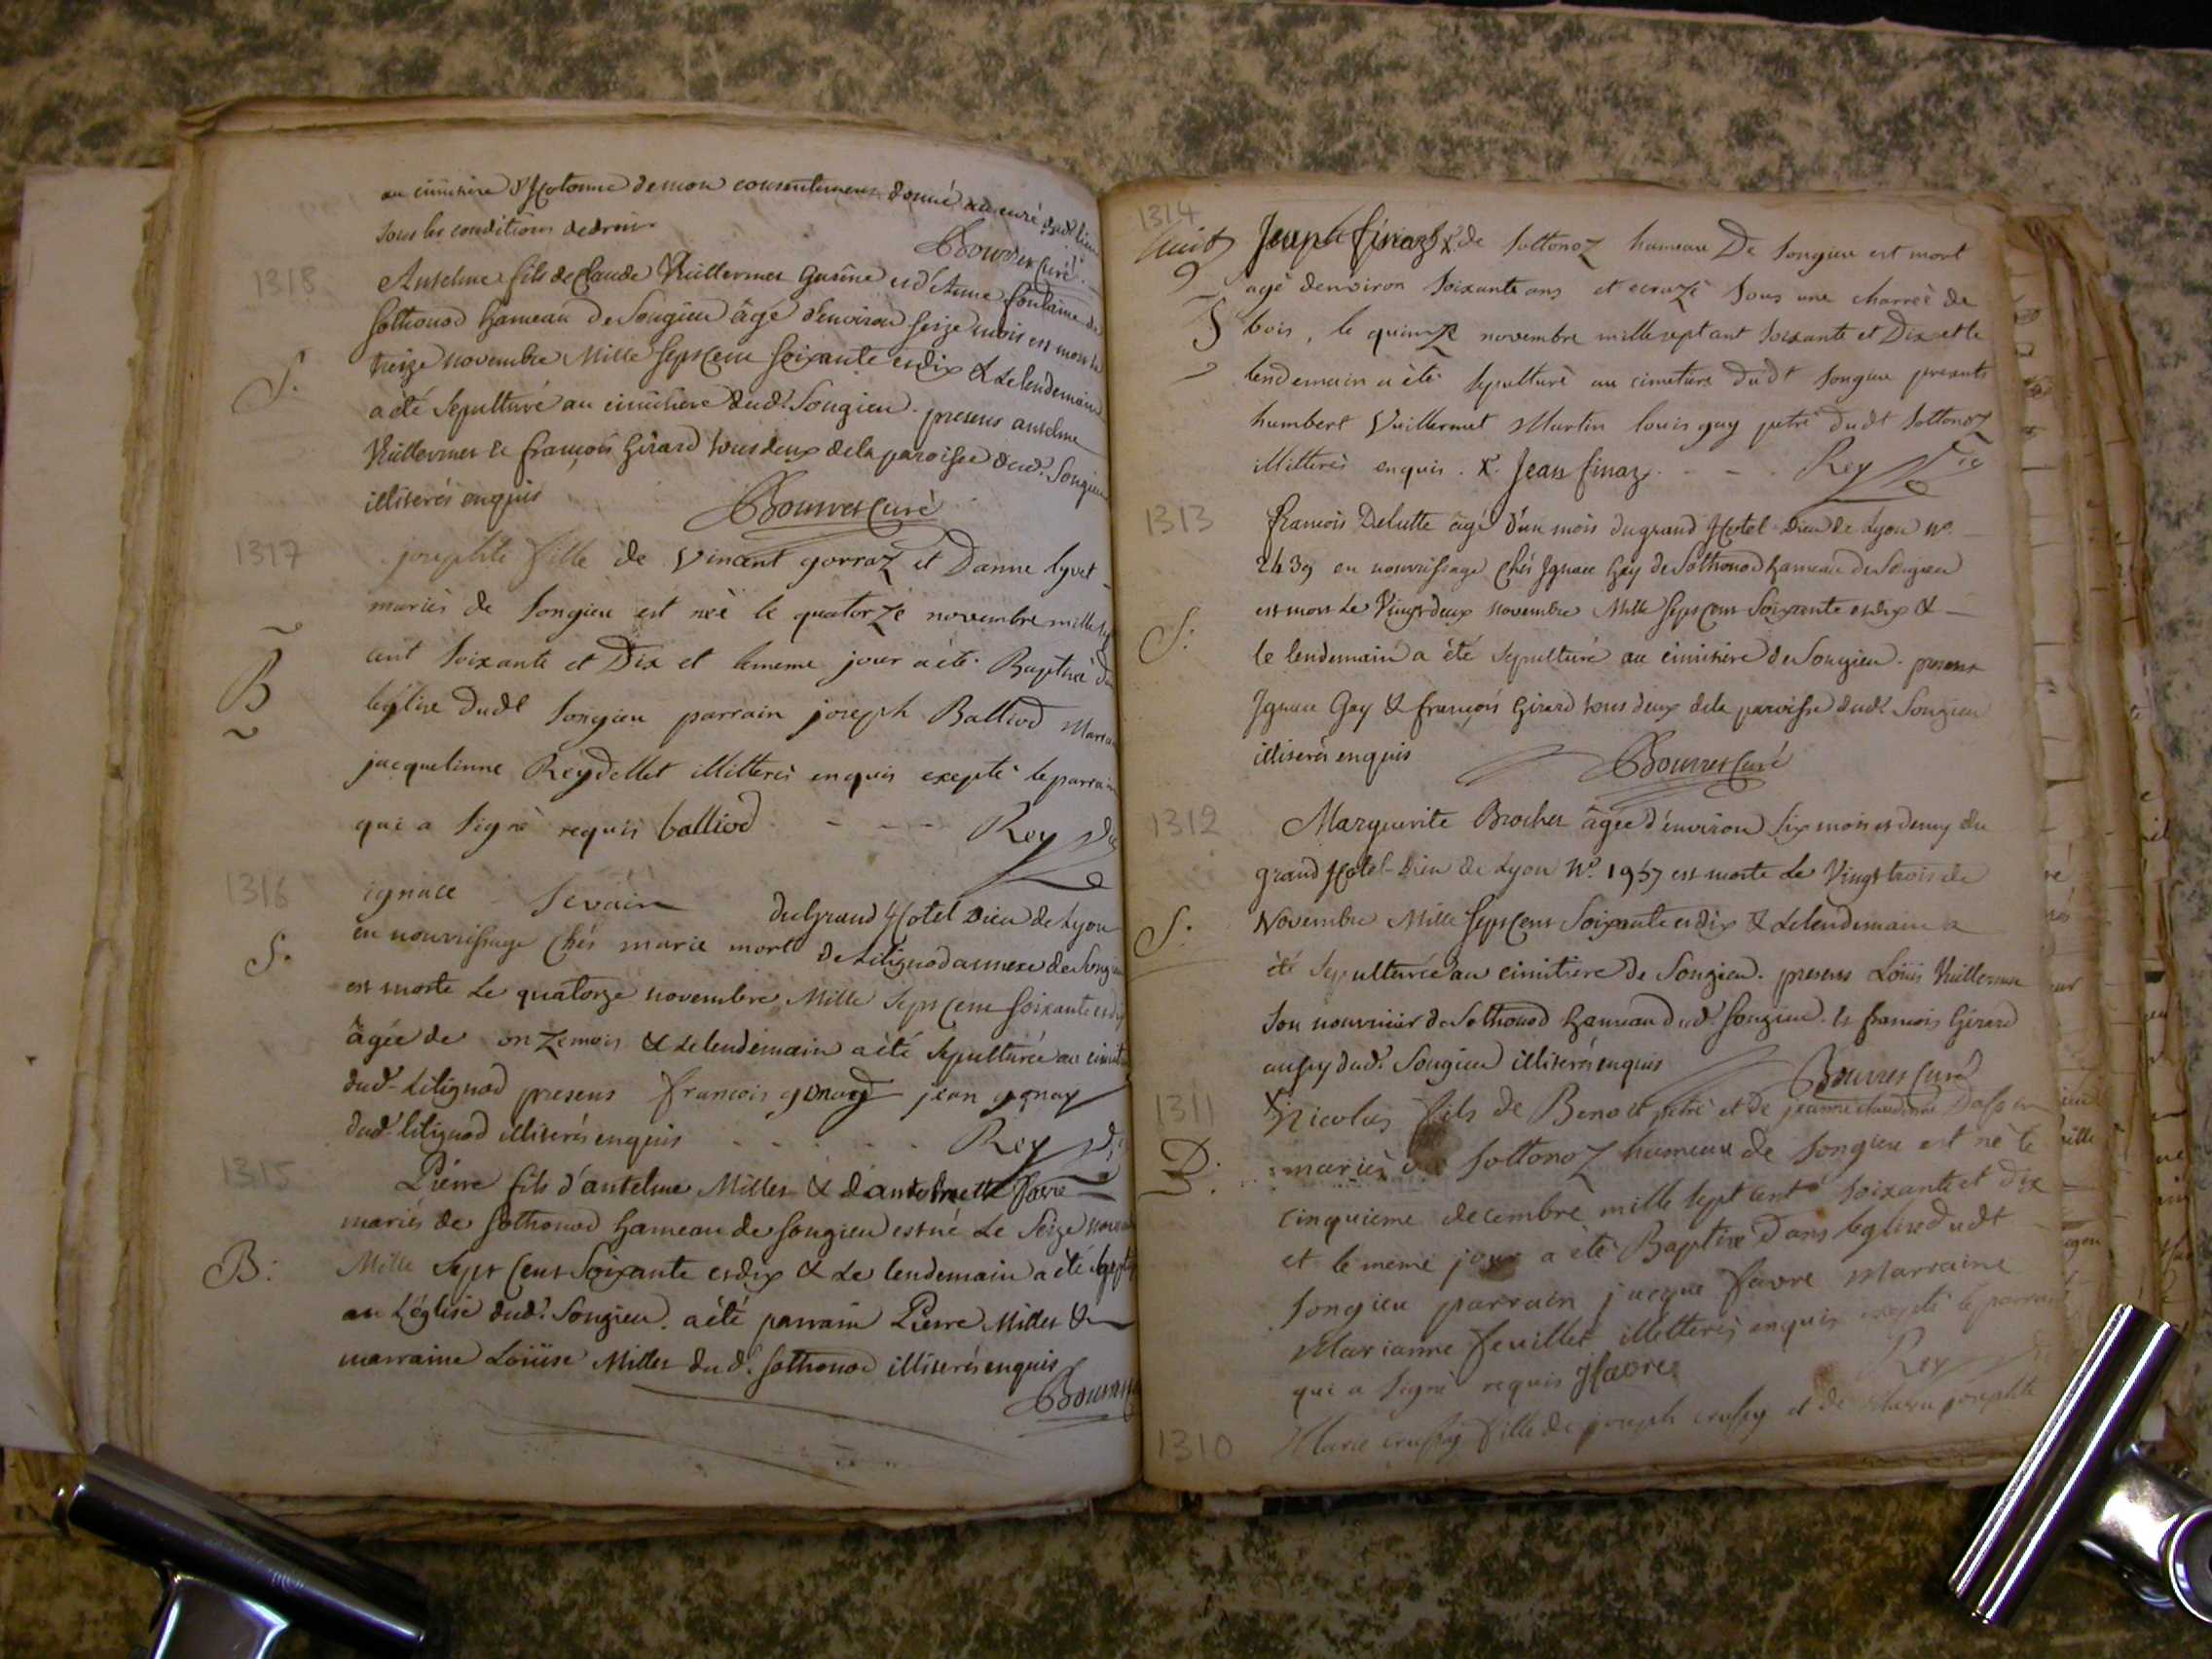 au cimitiere d'Hotonne de mon consentement donné au curé dudt lieu
sous les conditions de droit
Bouvier Curé
1318
Anselme fils de Claude Vuillermet Gasine et d'Anne fontaine de
Sothonod hameau de Songieu âgé d'environ seize mois est mort le
treize novembre Mille Sept Cent Soixante et dix & le lendemain
S.
a été Sepulturé au cimitiere dud. Songieu. presens anselme
Vuillermet & françois Girard tous deux de la paroisse dud. Songieu
illiterés enquis
Bouvier Curé
1317
josephte fille de Vincent gorraz et Danne lyvet
mariés de Songieu est néé le quatorze novembre mille sept
cent Soixante et Dix et le meme jour a été Baptisé dans
B
leglise dudt Songieu parrain joseph Balliod Marraine
jacquelinne Reydellet illitterés enquis exepté le parrain
qui a Signé requis balliod - - - Rey Vic
1316
ignace Sevain du Grand Hotel Dieu de Lyon
S.
en nourrissage chés marie mort de Litignod annexe de Songieu
est morte Le quatorze novembre Mille Sept Cent Soixante et dix
âgée de onze mois & le lendemain a été Sepulturée au cimitiere
dud. Litignod presens francois gonod jean gonay
dud. litignod illiterés enquis - - - - Rey Vic
1315
Pierre fils d'antelme Millet & d'antoinette favre
mariés de Sothonod hameau de Songieu est né Le Seize novembre
B.
Mille Sept Cent Soixante et dix & Le lendemain a été baptisé
en L'église dud. Songieu. a été parrain Pierre Millet &
marraine Loüise Millet dud. Sothonod illiterés enquis
Bouvier
1314
Joseph finaz X de Sottonoz hameau De Songieu est mort
agé denviron Soixante ans et ecrazé Sous une charreé de
S
bois, le quinze novembre mille sept cent Soixante et Dix et le
lendemain a été Sepulturé au cimetiere dudt Songieu presents
humbert Vuillermet Martin louis guy petré dudt Sottonoz
illitterés enquis. X. Jean finaz. - - Rey Vic
1313
francois Delutte âgé d'un mois du grand Hotel Dieu de Lyon no.
2439 en nourrissage chés Ignace Gay de Sothonod hameau de Songieu
est mort Le Vingt deux novembre Mille Sept Cent Soixante et dix &
S.
le lendemain a été Sepulturé au cimitiere de Songieu. presens
Ignace Gay & françois Girard tous deux de la paroisse dud. Songieu
illiterés enquis
Bouvier Curé
1312
Marguerite Brochet âgée d'environ Six mois et demy du
grand Hotel-Dieu de Lyon No. 1957 est morte Le Vingt trois de
S.
Novembre Mille Sept Cent Soixante et dix & Le lendemain a
été Sepulturée au cimitiere de Songieu. presens Loüis Vuillermet
Son nourricier de Sothonod hameau dud. Songieu & francois Girard
aussy dud. Songieu illiterés enquis
Bouvier Curé
1311
Nicolas fils de Benoit petré et de jeanne claudinne
B.
mariés de Sottonoz hameau de Songieu est né le
cinquieme decembre mille Sept cent Soixante et dix
et le meme jour a été Baptisé Dans leglise dudt
Songieu parrain jacque favre Marraine
Marianne feuillet illetterés enquis exepté le parrain
qui a Signé requis Jfavre Rey
1310
Marie crussy fille de joseph crussy et de Marie josephte